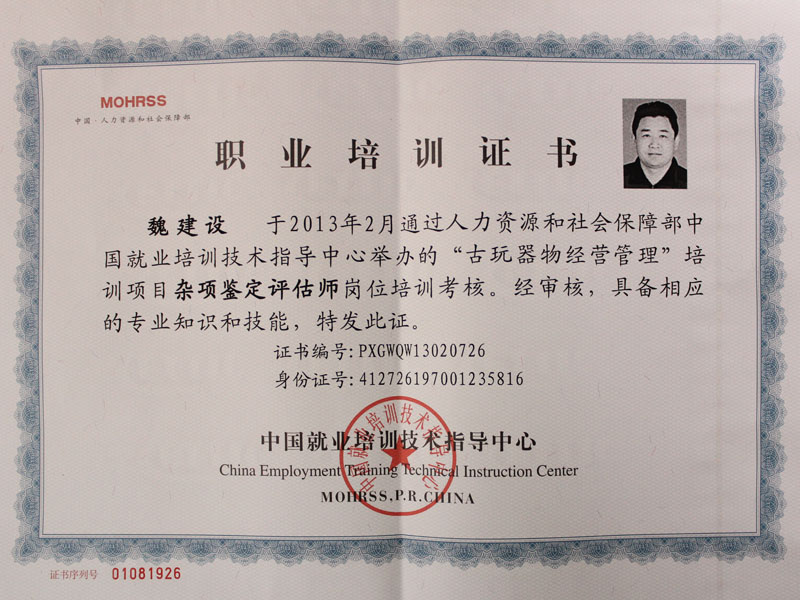 MOHRSS
中国·人力资源和社会保障部
职业培训证书
魏建设 于2013年2月通过人力资源和社会保障部中
国就业培训技术指导中心举办的“古玩器物经营管理”培
训项目杂项鉴定评估师岗位培训考核。经审核，具备相应
的专业知识和技能，特发此证。
证书编号:PXGWQW13020726
身份证号:412726197001235816
中国就业培训技术指导中心
中国就业培训技术指导中心
China Employment Training Technical Instruction Center
MOHRSS,P.R.CHINA
证书序列号 01081926